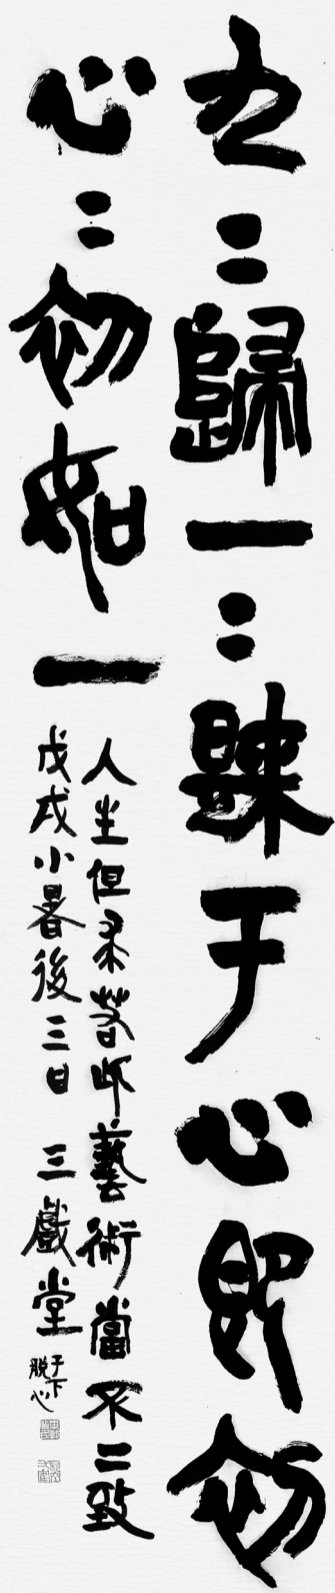 九〻歸一〻隸于心即初
心〻初如一
人生但求若此藝術當不二致
戊戌小暑後三日 三戲堂
于下
脫心